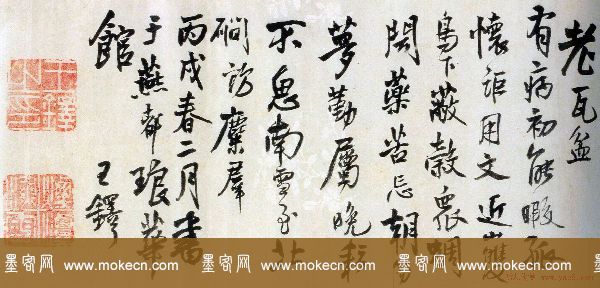 老瓦盆
有病初能暇孤
懷詎用文近
鳥下蔽穀眾蜩
閱藥苦忘朝
夢勤屬晚
不思南雪至北
磵訪麋群
丙戌春二月書
于燕都琅華
館 王鐸
墨客网 www.mokecn.com 墨客网 www.mokecn.com 墨客网 www.mokecn.com